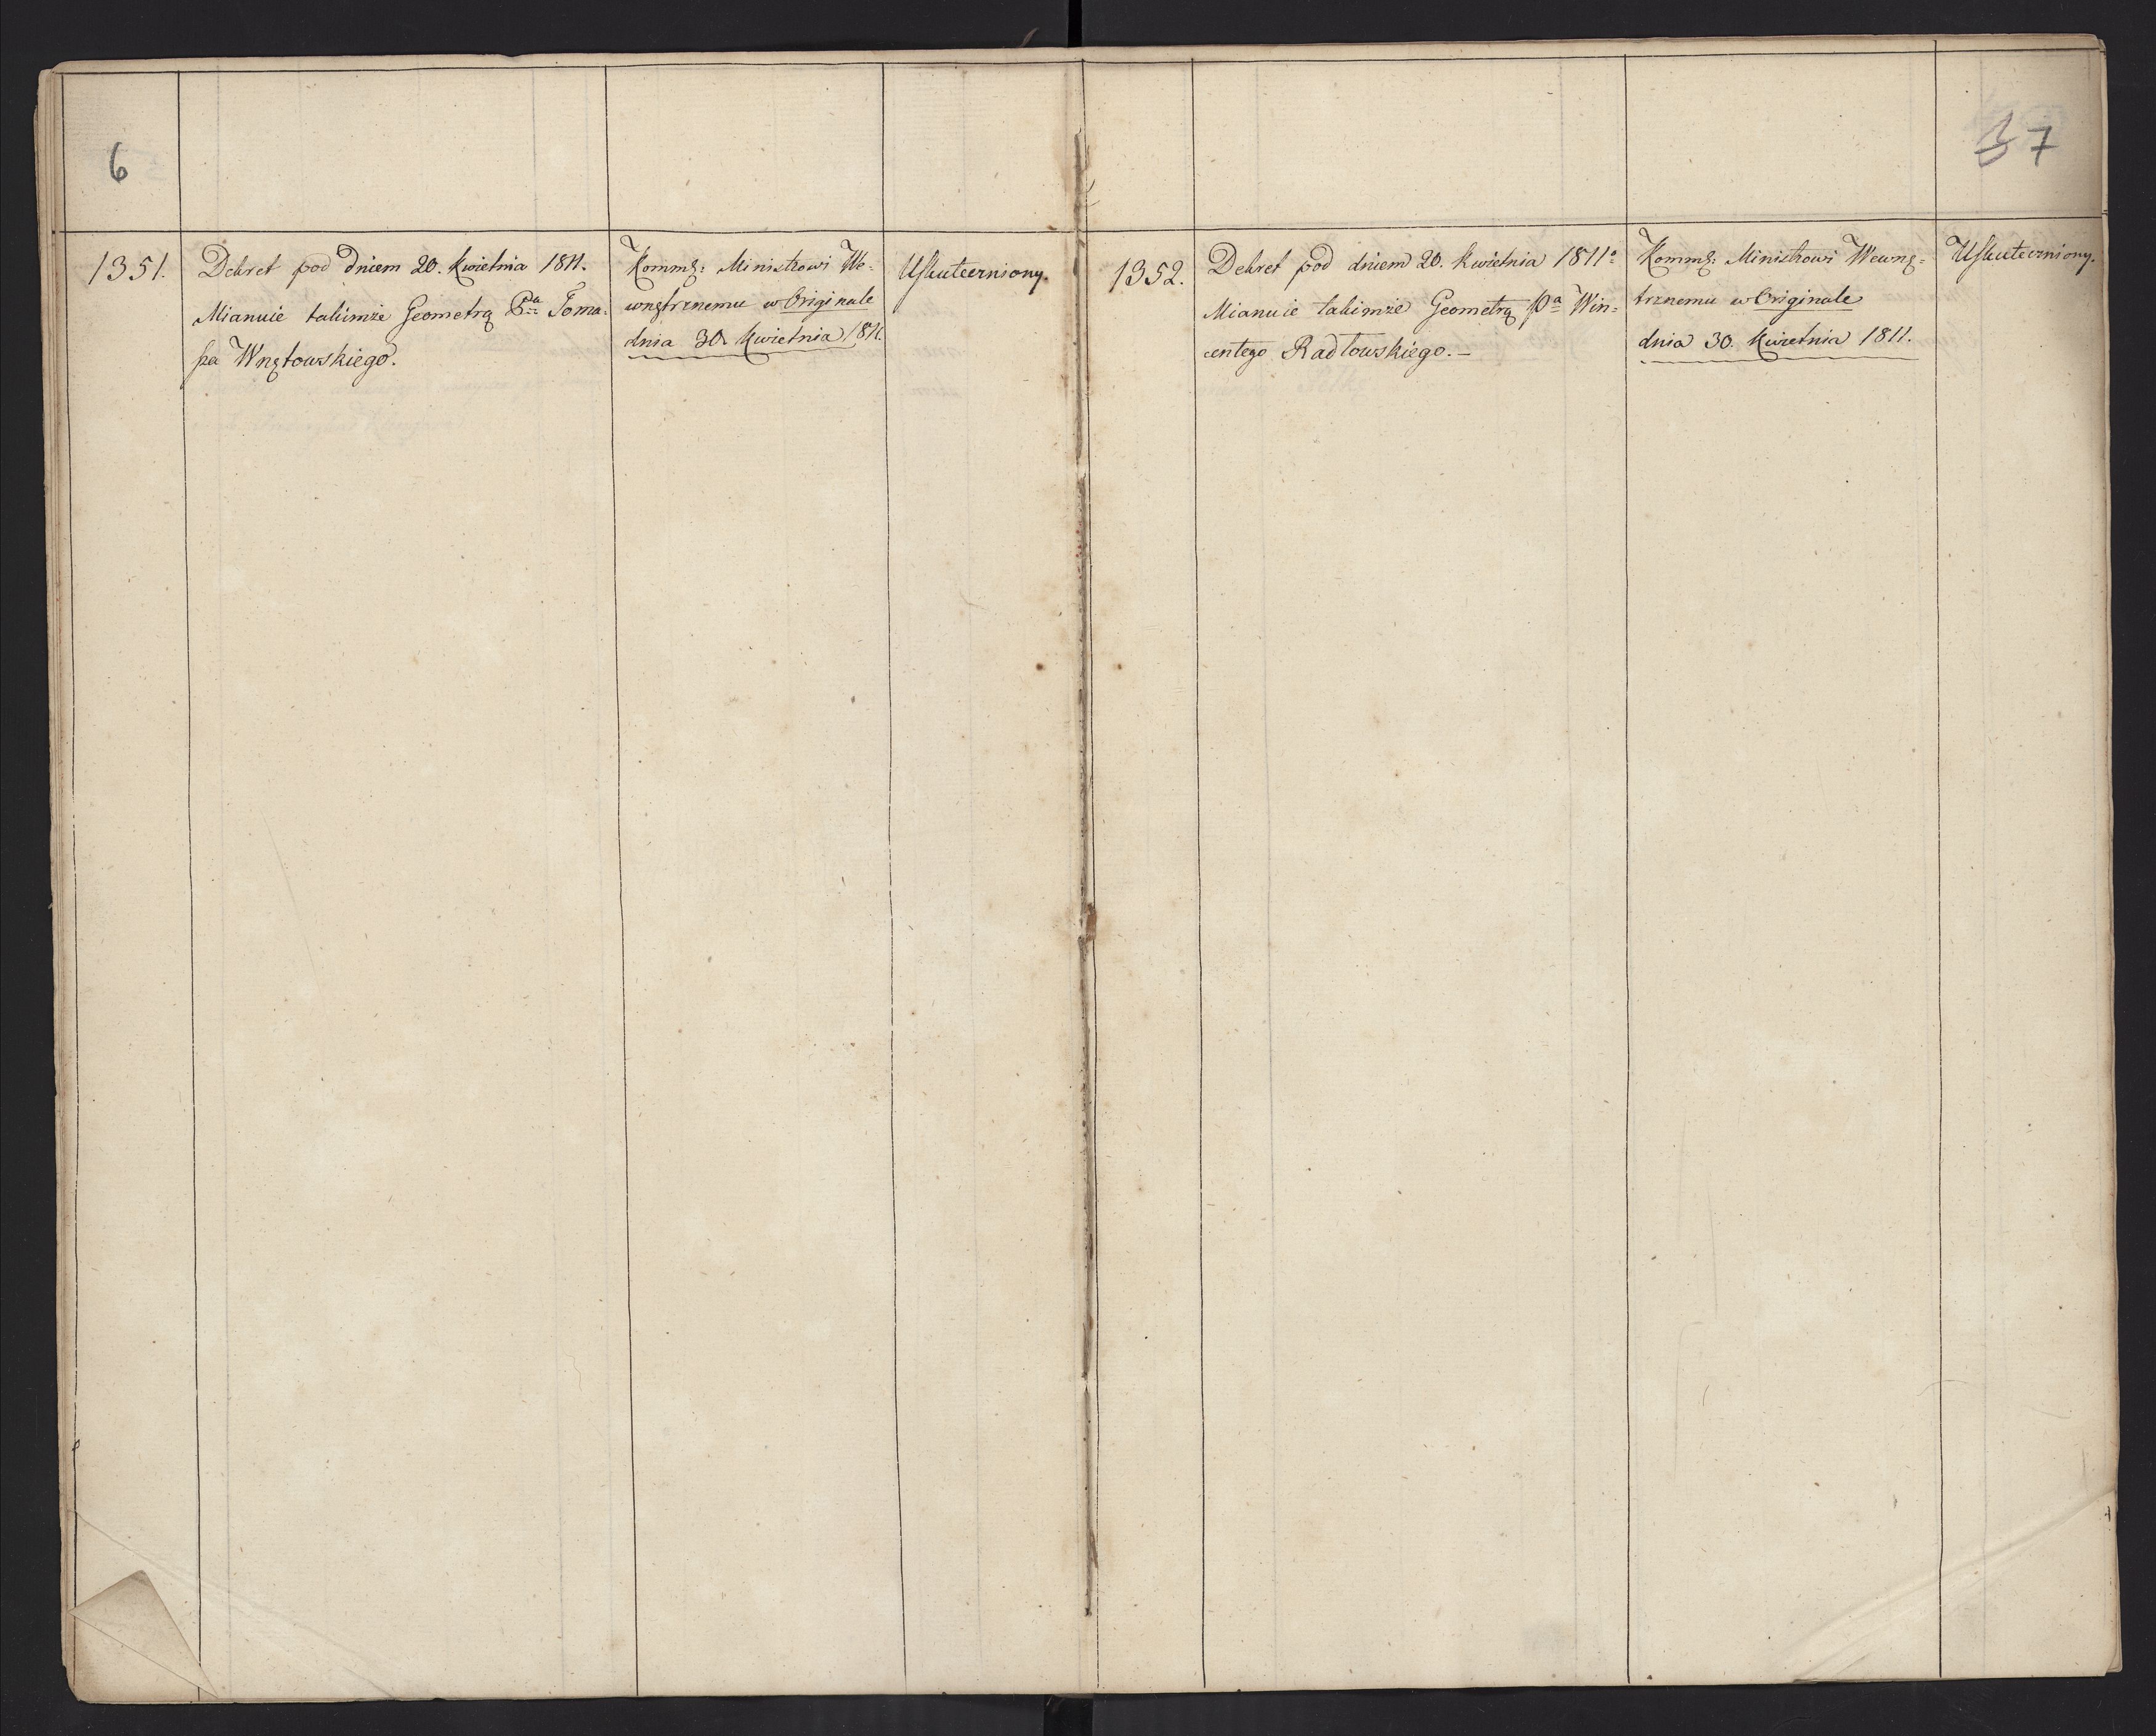 6
1351.
Dekret pod dniem 20. Kwietnia 1811.
Mianuie takimże Geometrą Pa Toma=
sza Wnętowskiego.
Kommk: Ministrowi We=
wnętrznemu w Originale
dnia 30. Kwietnia 1811.
Uskuteczniony.
37
1352.
Dekret pod dniem 20. Kwietnia 1811o
Mianuie takimże Geometrą Pa Win=
centego Radłowskiego.–
Kommk: Ministrowi Wewnę=
trznemu w Originale
dnia 30. Kwietnia 1811.
Uskuteczniony.